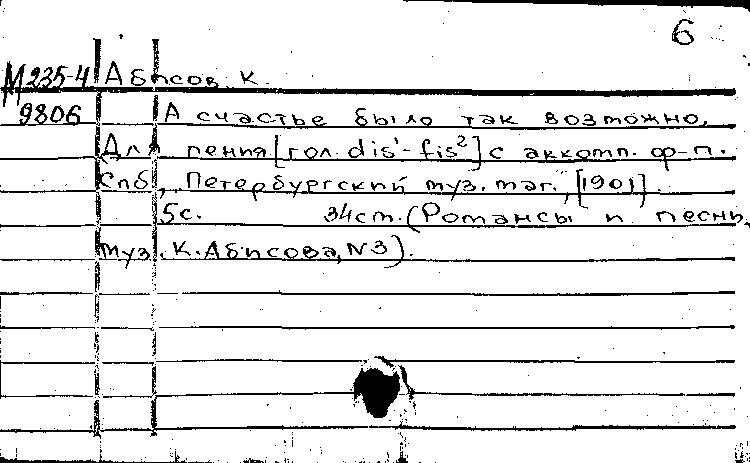 6
М 235-4 Абисов К.
9806 А счастье было так возможно.
Для пения [гол. dis¹-fis²] с аккомп. ф-п.
Спб, Петербургский муз. маг., [1901].
5с. 34см. (Романсы и песни,
муз. К. Абисова, N3).